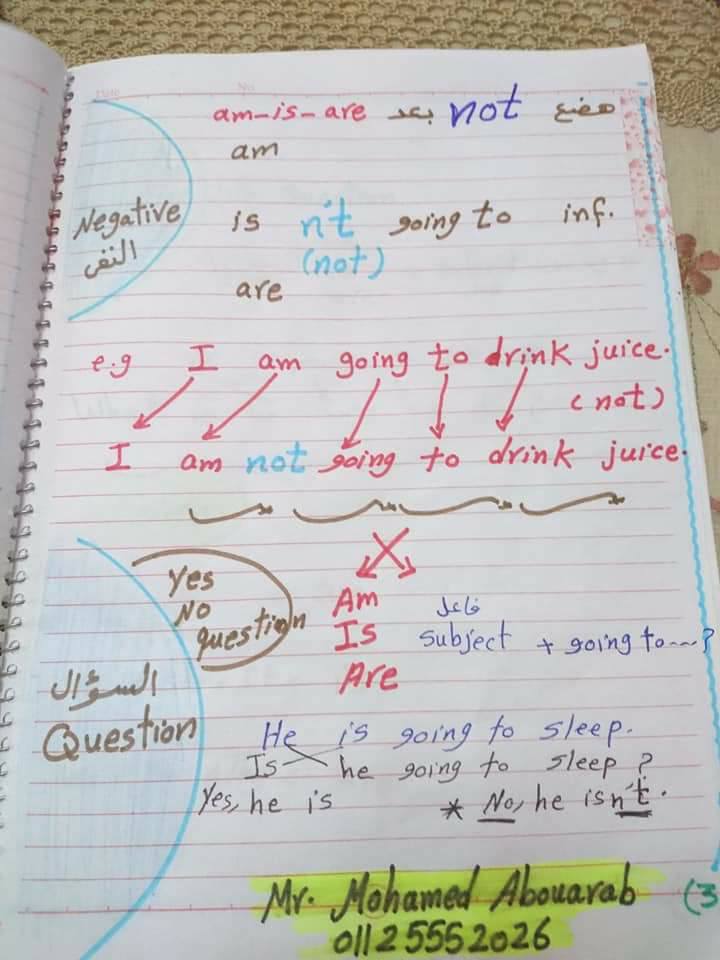 هضع not بعد am-is-are
am
Negative
النفى
is n't going to inf.
(not)
are
e.g I am going to drink juice.
(not)
I am not going to drink juice.
Yes
No
question
Am
Is
Are
فاعل
subject + going to ~~?
السؤال
Question
He is going to sleep.
Is he going to sleep ?
Yes, he is * No, he isn't.
Mr. Mohamed Abouarab
01125552026
(3